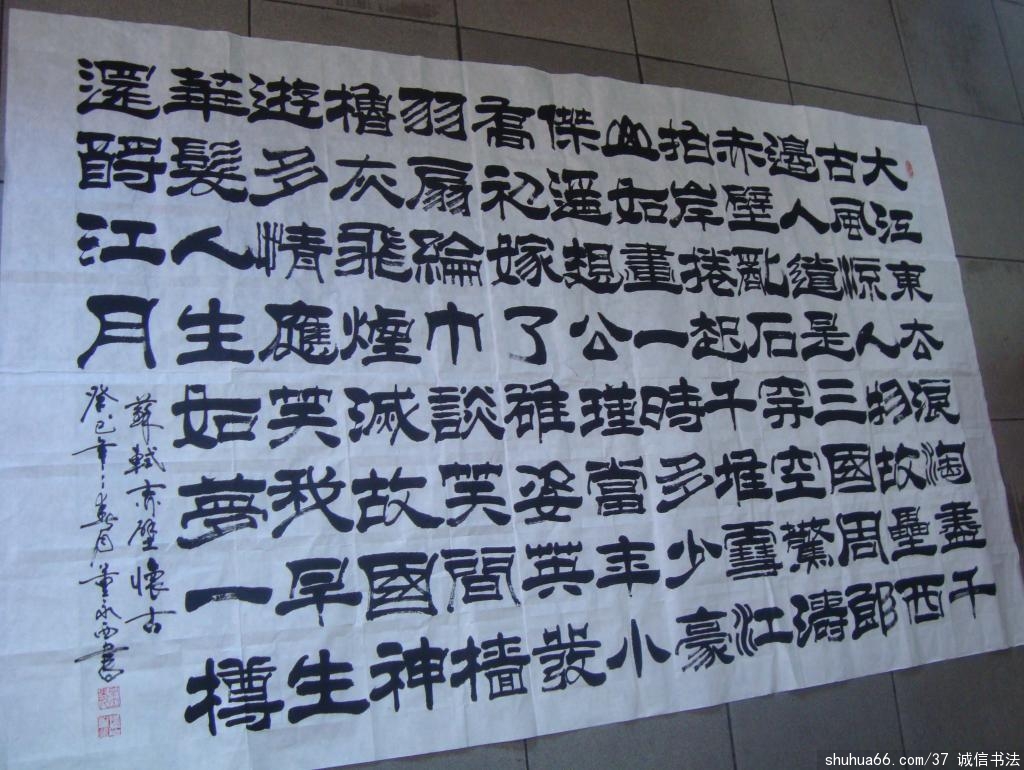 大江東去浪淘盡千
古風流人物故壘西
邊人道是三國周郎
赤壁亂石穿空驚濤
拍岸捲起千堆雪江
山如畫一時多少豪
傑遥想公瑾當年小
喬初嫁了雄姿英發
羽扇綸巾談笑間檣
櫓灰飛煙滅故國神
遊多情應笑我早生
華髮人生如夢一樽
還酹江月
蘇軾赤壁懷古
癸巳年之春月董永西書
shuhua66.com/37 诚信书法